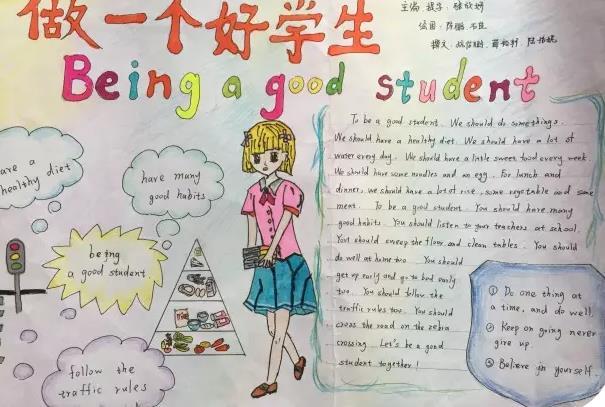 做一个好学生
Being a good student
主编:
绘图:
撰文:
have a
healthy diet
have many
good habits
being
a good student
follow the
traffic rules
To be a good student. We should do some things.
We should have a healthy diet. We should have a lot of
water every day. We should have a little sweet food every week.
We should have some noodles and an egg. For lunch and
dinner, we should have a lot of rice, some vegetable and some
meat. To be a good student. You should have many
good habits. You should listen to your teachers at school.
You should sweep the floor and clean tables. You should
do well at home too. You should
get up early and go to bed early
too. You should follow the
traffic rules too. You should
cross the road on the zebra
crossing. Let's be a good
student together!
① Do one thing at
a time, and do well.
② Keep on going never
give up.
③ Believe in yourself